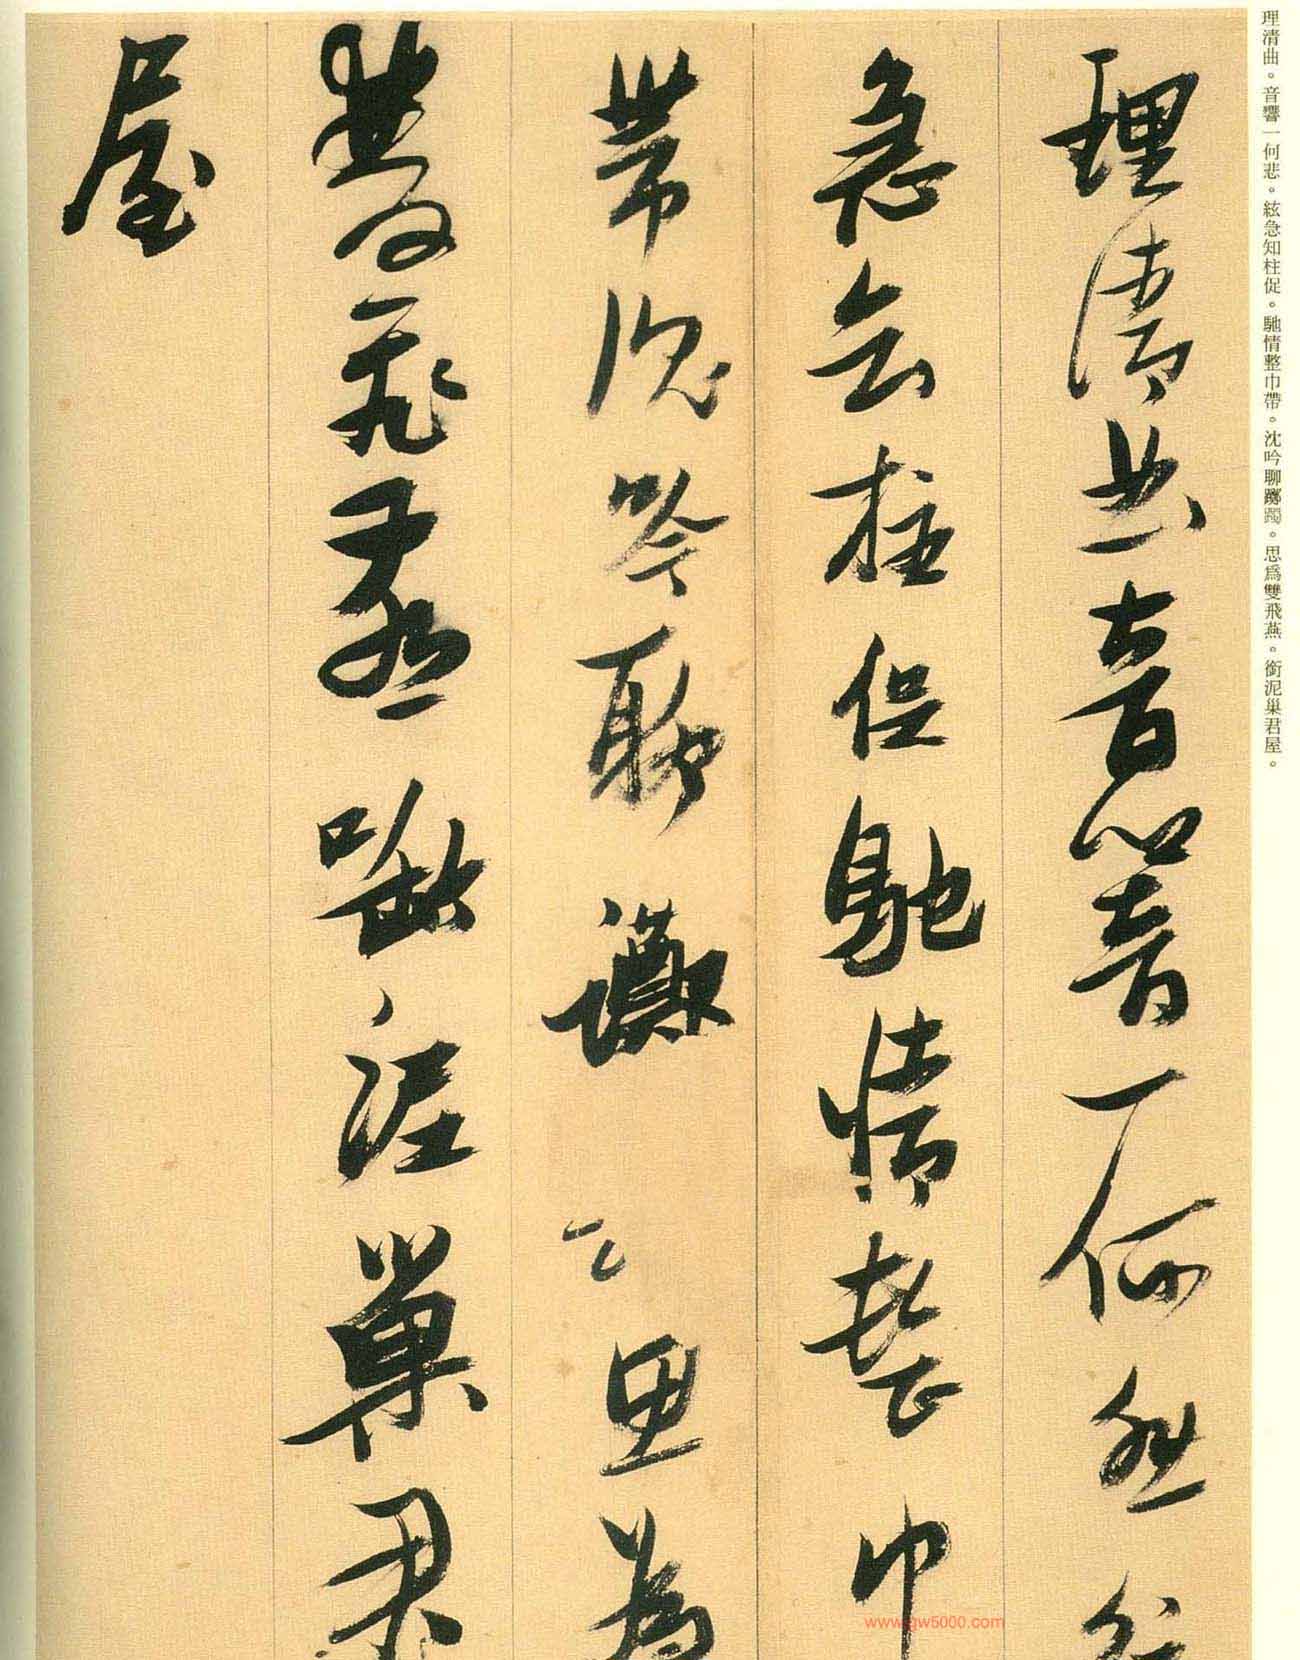 理清曲。音響一何悲。絃急知柱促。馳情整巾帶。沈吟聊躑躅。思爲雙飛燕。銜泥巢君屋。
理清曲音響一何悲絃
急知柱促馳情整巾
帶沈吟聊躑思為
雙飛燕銜泥巢君
屋
www.gw5000.com